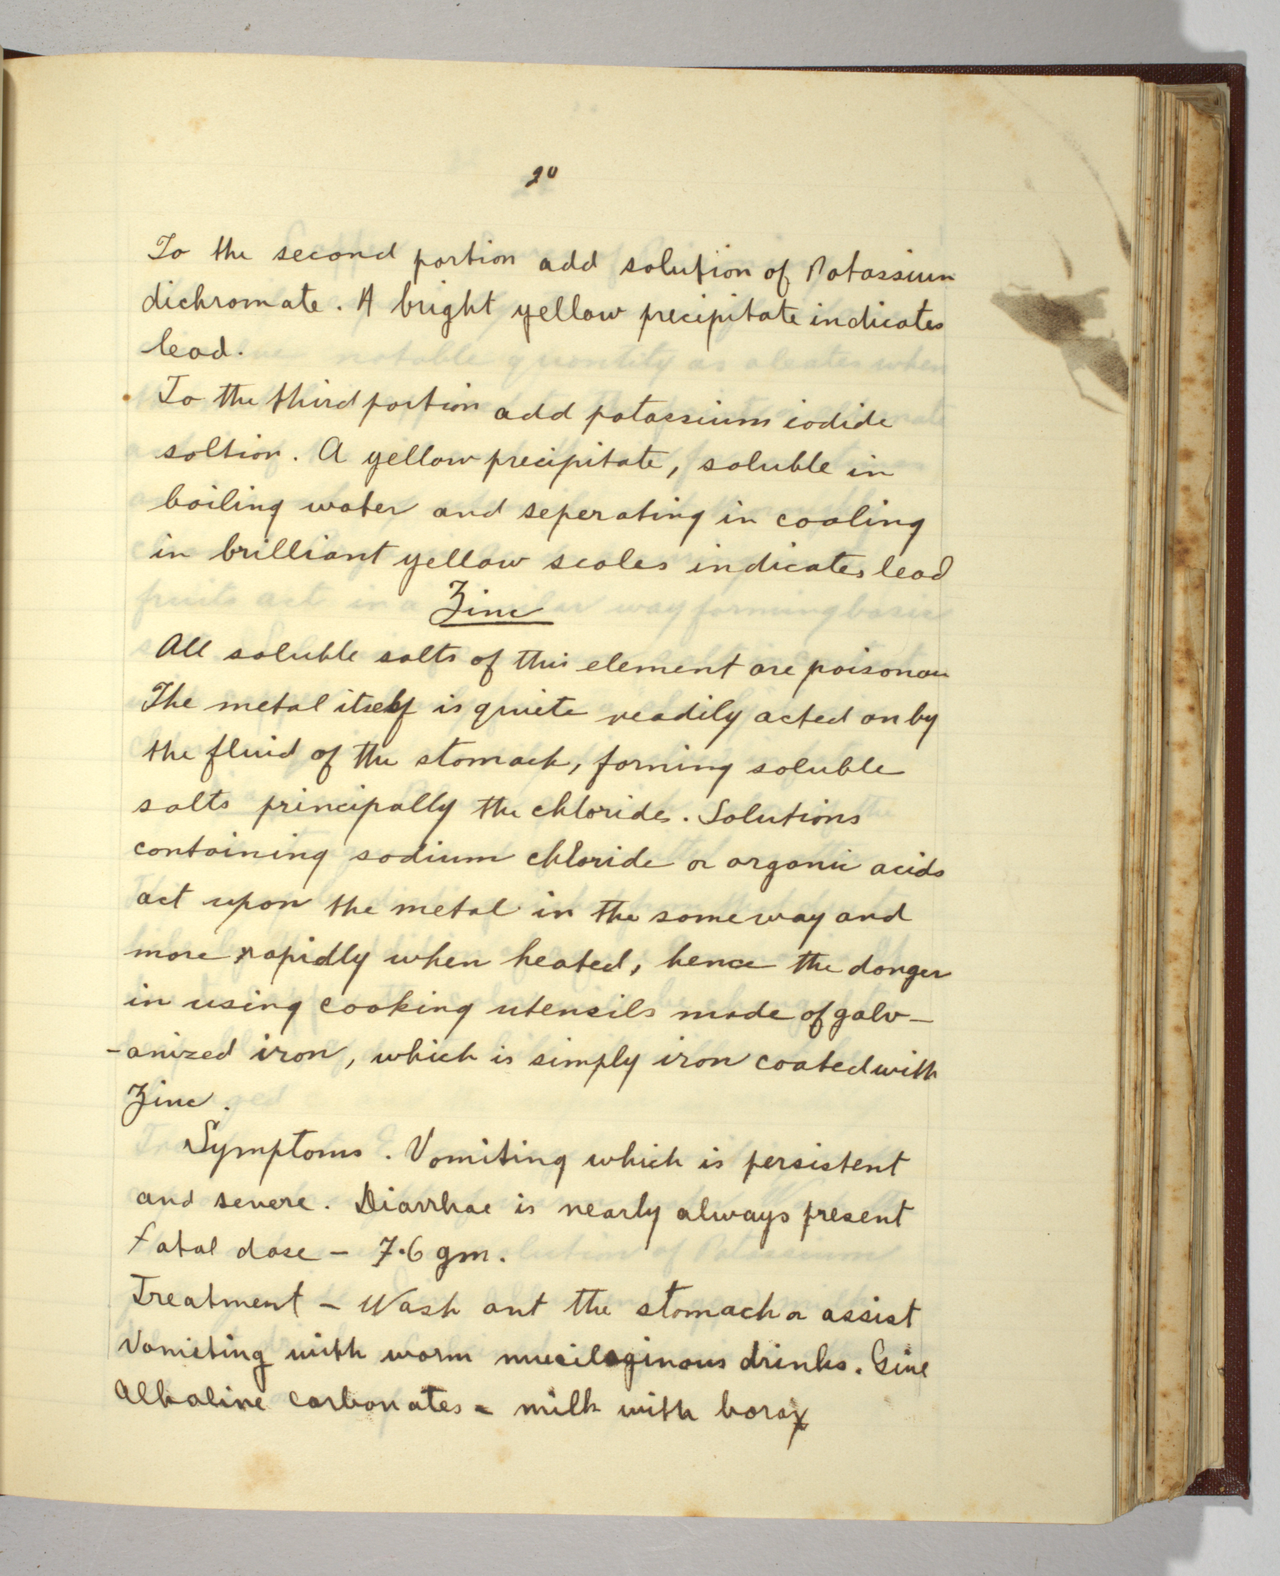 20
To the second portion add solution of Potassium
dichromate. A bright yellow precipitate indicates
lead.
To the third portion add potassium iodide
soltion. A yellow precipitate, soluble in
boiling water and seperating in cooling
in brilliant yellow scales indicates lead
Zinc
All soluble salts of this element are poisonou
The metal itself is quite readily acted on by
the fluid of the stomach, forming soluble
salts principally the chloride. Solutions
containing sodium chloride or organic acids
act upon the metal in the same way and
more rapidly when heated, hence the danger
in using cooking utensils made of galv-
-anized iron, which is simply iron coated with
Zinc.
Symptoms. Vomiting which is persistent
and severe. Diarrhae is nearly always present
Fatal dose - 7.6 gm.
Treatment - Wash out the stomach or assist
Vomiting with warm mucilaginous drinks. Give
Alkaline carbonates - milk with borax